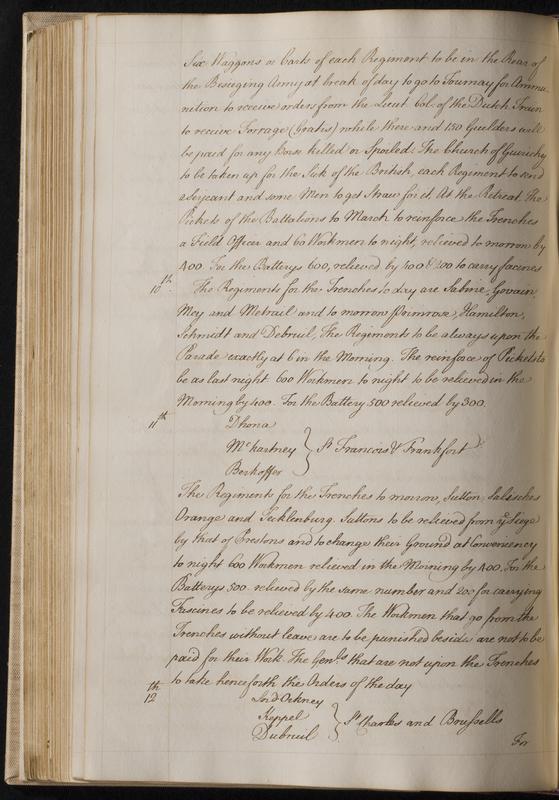 Six Waggons or Carts of each Regiment to be in the Rear of
the Besieging Army at break of day to go to Tournay for Ammu-
nition to receive orders from the Lieut. Col. of the Dutch Train
to receive Forrage (Gratis) while there and 150 Guilders will
be paid for any Horse killed or Spoiled. The Church of
to be taken up for the Sick of the British, each Regiment to send
a Serjeant and some Men to get Straw for it. At the Retreat The
Pickets of the Battalions to March to reinforce the Trenches
a Field Officer and 60 Workmen to night, relieved to morrow by
400. For the Batterys 600, relieved by 400 & 200 to carry facines
10th The Regiments for the Trenches to day are Sabine, Govain,
Mey and Metrail and to morrow Primrose, Hamilton,
Schmidt and Debreul, The Regiments to be always upon the
Parade exactly at 6 in the Morning. The reinforce of Pickets to
be as last night. 600 Workmen to night to be relieved in the
Morning by 400. For the Battery 500 relieved by 300.
11th Dhona
McKartney } St. Francois & Frankfort
Berkoffer
The Regiments for the Trenches to morrow, Sutton, Salsiches
Orange and Tecklenburg. Suttons to be relieved from ye Siege
by that of Prestons and to change their Ground at Conveniency
to night 600 Workmen relieved in the Morning by 400. For the
Batterys 500. relieved by the same number and 200 for carrying
Fascines to be relieved by 400. The Workmen that go from the
Trenches without leave are to be punished beside are not to be
paid for their Work. The Genls that are not upon the Trenches
to take henceforth the Orders of the day
12th Lrd Orkney
Keppel } St. Charles and Brussells
Dubreuil
For